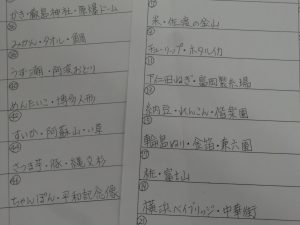 かき・厳島神社・原爆ドーム
みかん・タオル・鯛
うず潮・阿波おどり
めんたいこ・博多人形
すいか・阿蘇山・い草
さつま芋・豚・縄文杉
ちゃんぽん・平和祈念像
米・佐渡の金山
チューリップ・ホタルイカ
下仁田ねぎ・富岡製糸場
納豆・れんこん・偕楽園
輪島ぬり・金箔・兼六園
桃・富士山
横浜ベイブリッジ・中華街